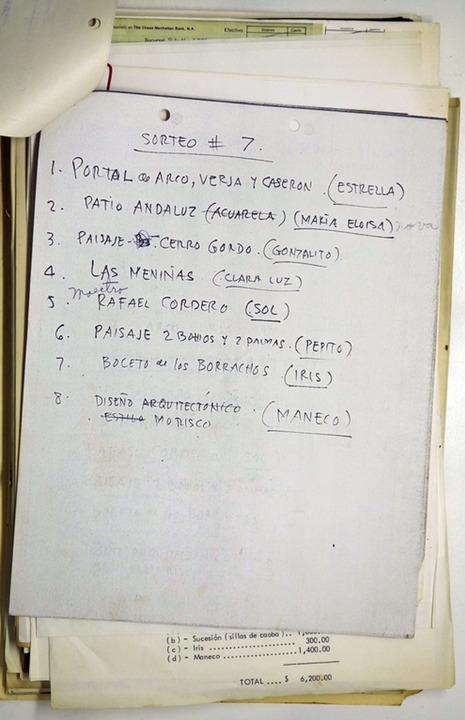 on The Chase Manhattan Bank, N.A.
Efectivo
SORTEO # 7.
1. PORTAL de ARCO, VERJA Y CASERON. (ESTRELLA)
2. PATIO ANDALUZ (ACUARELA) (MARIA ELOISA) nova
3. PAISAJE - CERRO GORDO. (GONZALITO).
4. LAS MENIÑAS (CLARA LUZ)
Maestro
5. RAFAEL CORDERO (SOL)
6. PAISAJE 2 BOHIOS Y 2 PALMAS. (PEPITO)
7. BOCETO de los BORRACHOS (IRIS)
8. DISEÑO ARQUITECTÓNICO. (MANECO)
ESTILO MORISCO
(b) - Sucesión (sillas de caoba)..
(c) - Iris .................. 300.00
(d) - Maneco .................. 1,400.00
TOTAL .... $ 6,200.00